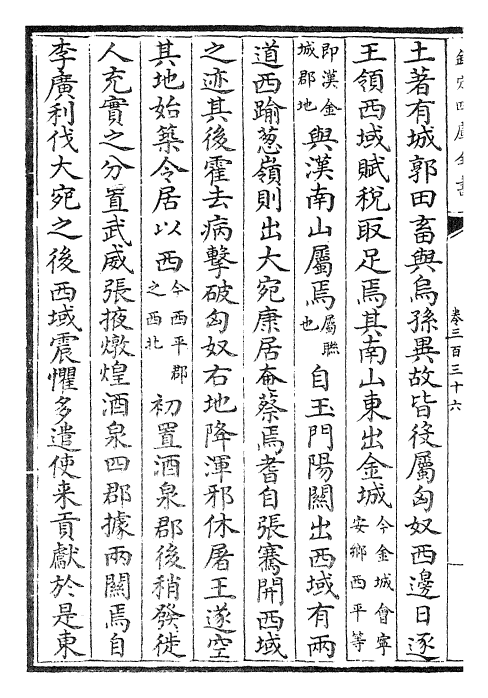 欽定四庫全書
卷三百三十六
土著有城郭田畜與烏孫異故皆役屬匈奴西邊日逐
王領西域賦稅取足焉其南山東出金城今金城會寧安鄉西平等
即漢金城郡地與漢南山屬焉屬聨也自玉門陽關出西域有兩
道西踰葱嶺則出大宛康居奄蔡焉耆自張騫開西域
之迹其後霍去病擊破匈奴右地降渾邪休屠王遂空
其地始築令居以西今西平郡之西北初置酒泉郡後稍發徙
人充實之分置武威張掖燉煌酒泉四郡據兩關焉自
李廣利伐大宛之後西域震懼多遣使来貢獻於是東